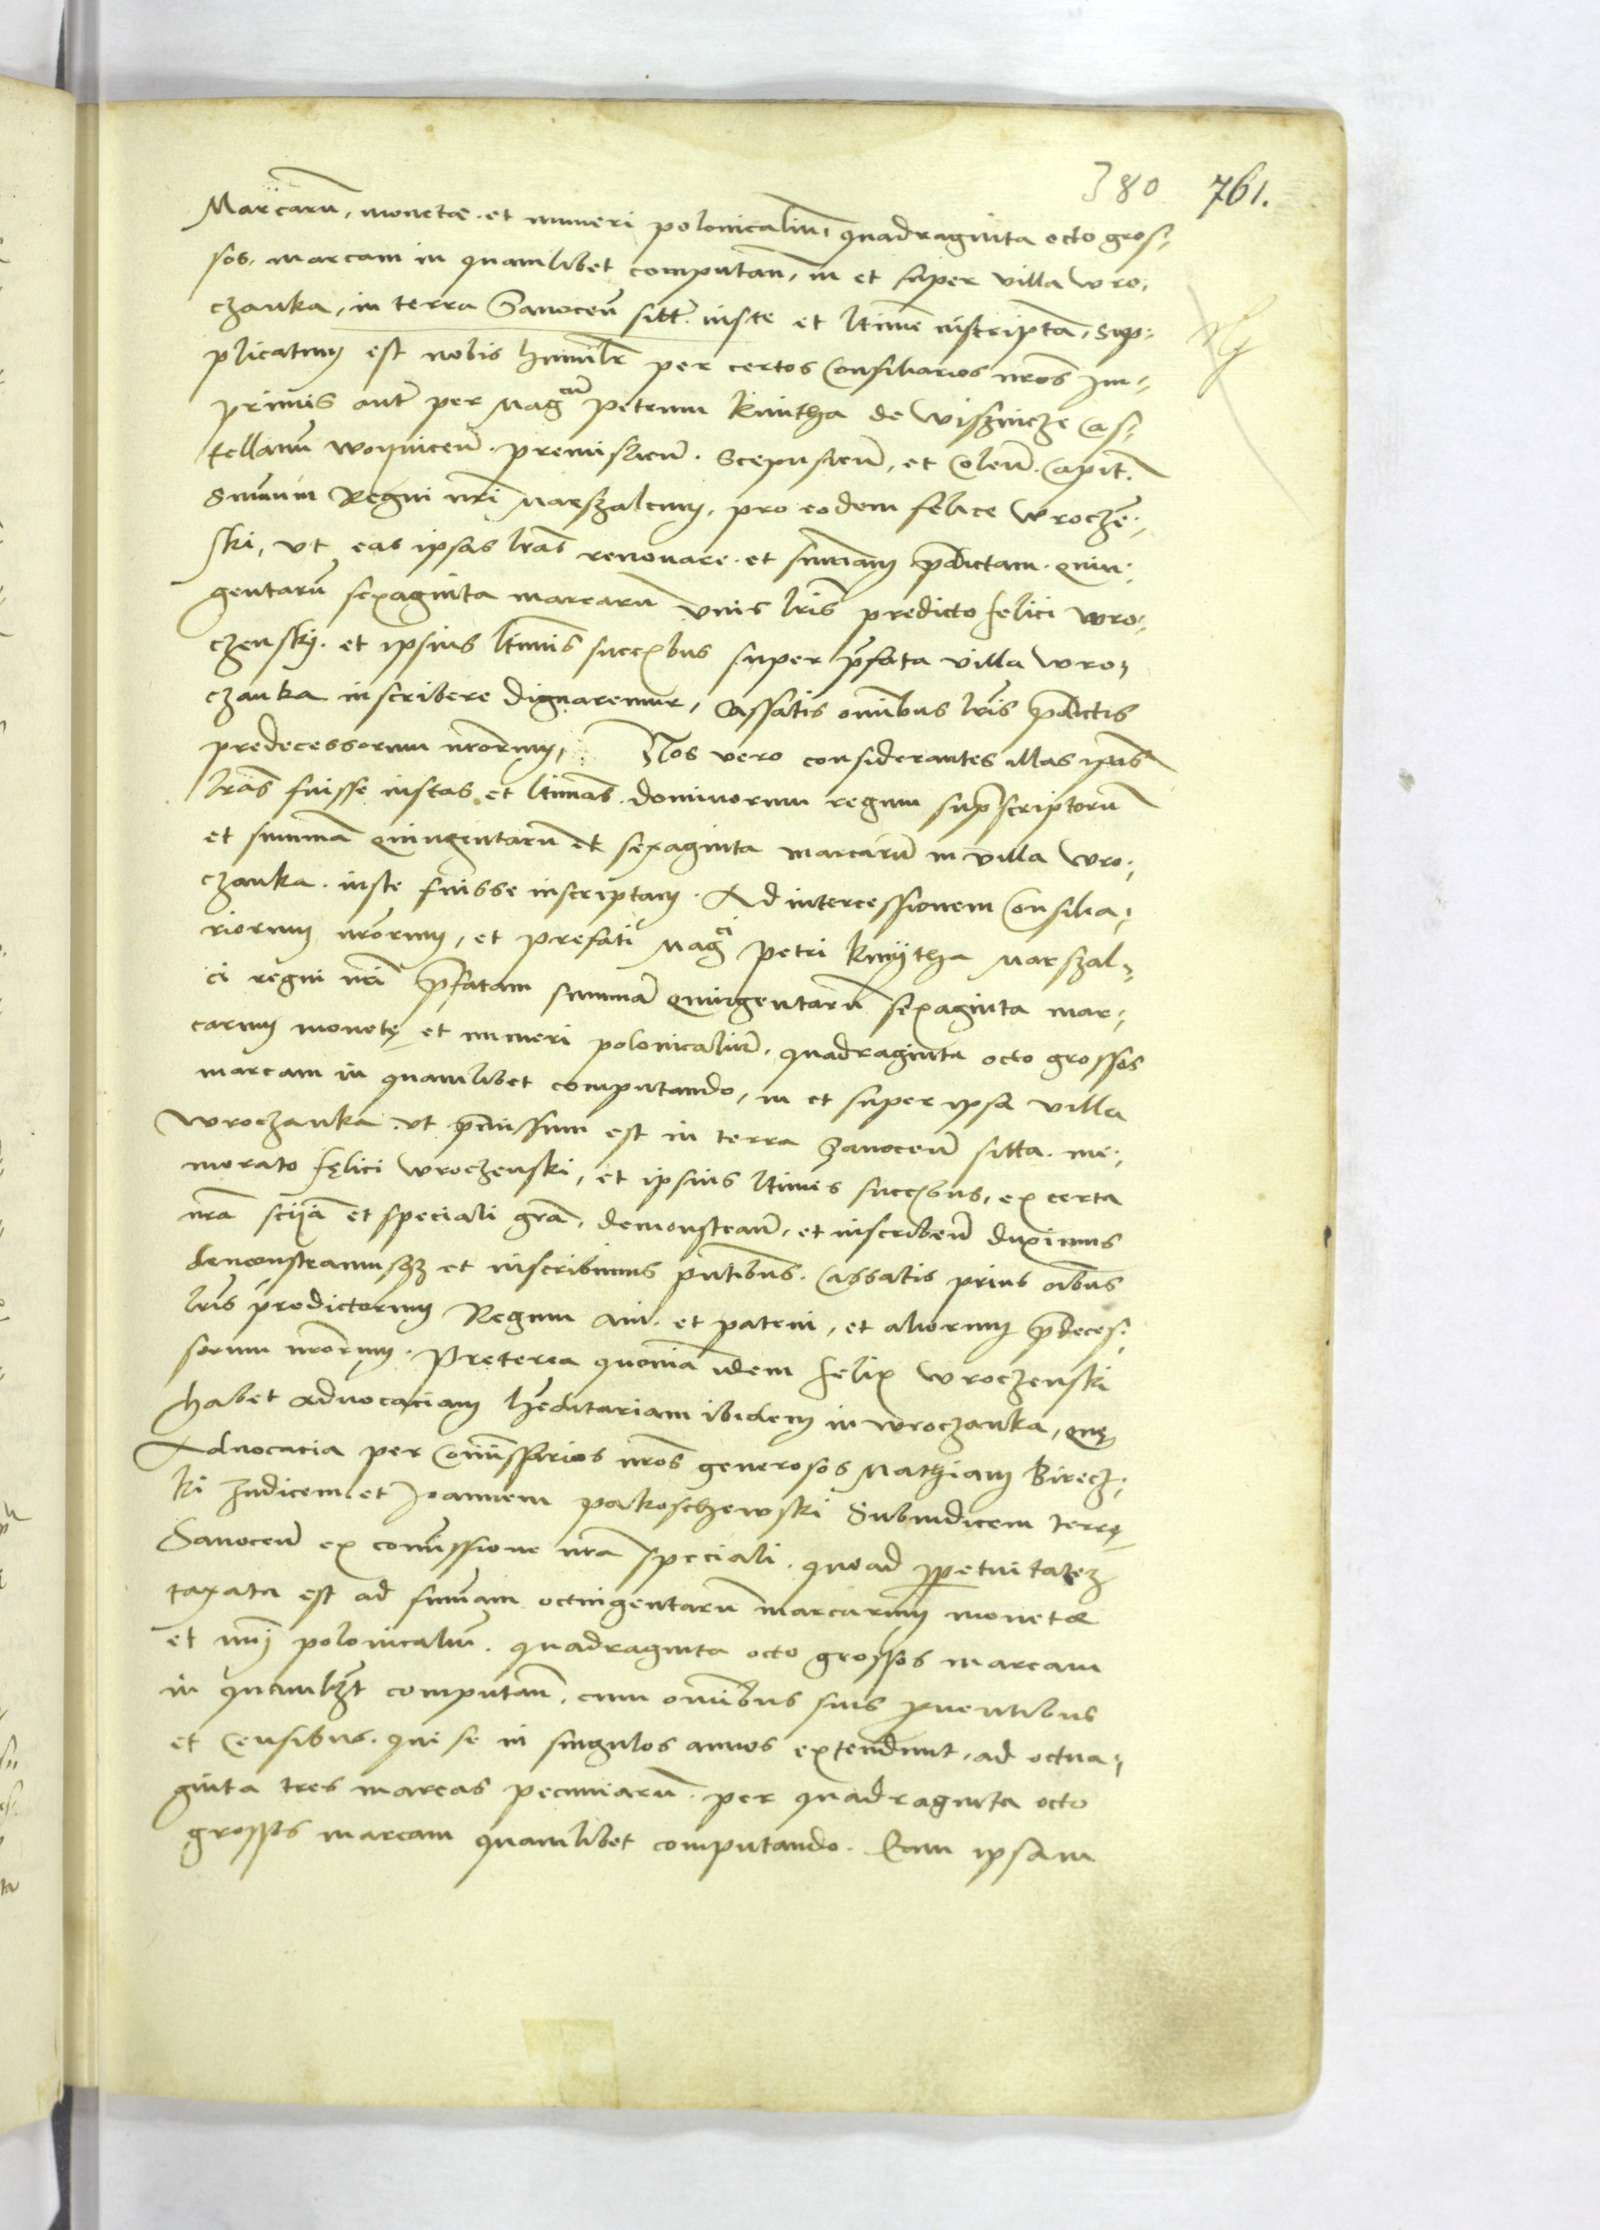 380 761.
Marcaru, monetæ. et numeri polonicaliu, quadraginta octo gros-
sos. marcam in quamlibet computan, in et super villa wro-
czanka, in terra Sanocen sitt. iuste et ltime inscripta, Sup-
plicatum est nobis humilr per certos Consiliarios nros Im-
primis aut per Mag cum Petrum kmitha de Wisznicze Cas-
tellanu woynicen. premislien. Scepusien, et Colen. Capit.
Smum Regni nri Marszalcum, pro eodem felice wroczen-
ski, vt eas ipsas lras renouare. et summam pdictam. quin-
gentaru sexaginta marcaru vnis lris predicto felici wro-
czenski. et ipsius ltimis succribus super pfata villa wro-
czanka inscribere dignaremur, Cassatis omibus lris pdictis
predecessorum nrorum, Nos vero considerantes illas ipas
lras fuisse iustas et ltimas. dominorum regum suprascriptoru
et summa quingentaru et sexaginta marcaru in villa wro-
czanka. iuste fuisse inscriptam. Ad intercessionem Consilia-
riorum nrorum, et prefati Mag ci Petri kmytha Marszal-
ci regni nri pfatam summa quingentaru sexaginta mar-
carum monetę et numeri polonicaliu, quadraginta octo grossos
marcam in quamlibet computando, in et super ipsa villa
wroczanka. vt pmissum est in terra Sanocen sitta. me-
morato fęlici wroczenski, et ipsius ltimis succribus, ex certa
nra scija et speciali gra, demonstran, et inscriben duximus
demonstramusqz et inscribimus pntibus. Cassatis prius oibus
lris predictorum Regum aui. et patrui, et aliorum pdeces-
sorum nrorum. Preterea quonia idem felix wroczenski
habet aduocaciam hreditariam ibidem in wroczanka, quę
Aduocacia per Comissarios nros generosos Mathiam Birecz-
ki Iudicem et Joannem pakoschewski Subiudicem terrę
Sanocen ex comissione nra speciali. quoad ppetuitatez
taxata est ad sumam octingentaru marcarum monetæ
et nuri polonicaliu. quadraginta octo grossos marcam
in quamlzt computan, cum omibus suis puentibus
et Censibus. qui se in singulos annos extendunt, ad octua-
ginta tres marcas pecuniaru. per quadraginta octo
grossos marcam quamlibet computando. Eam ipsam